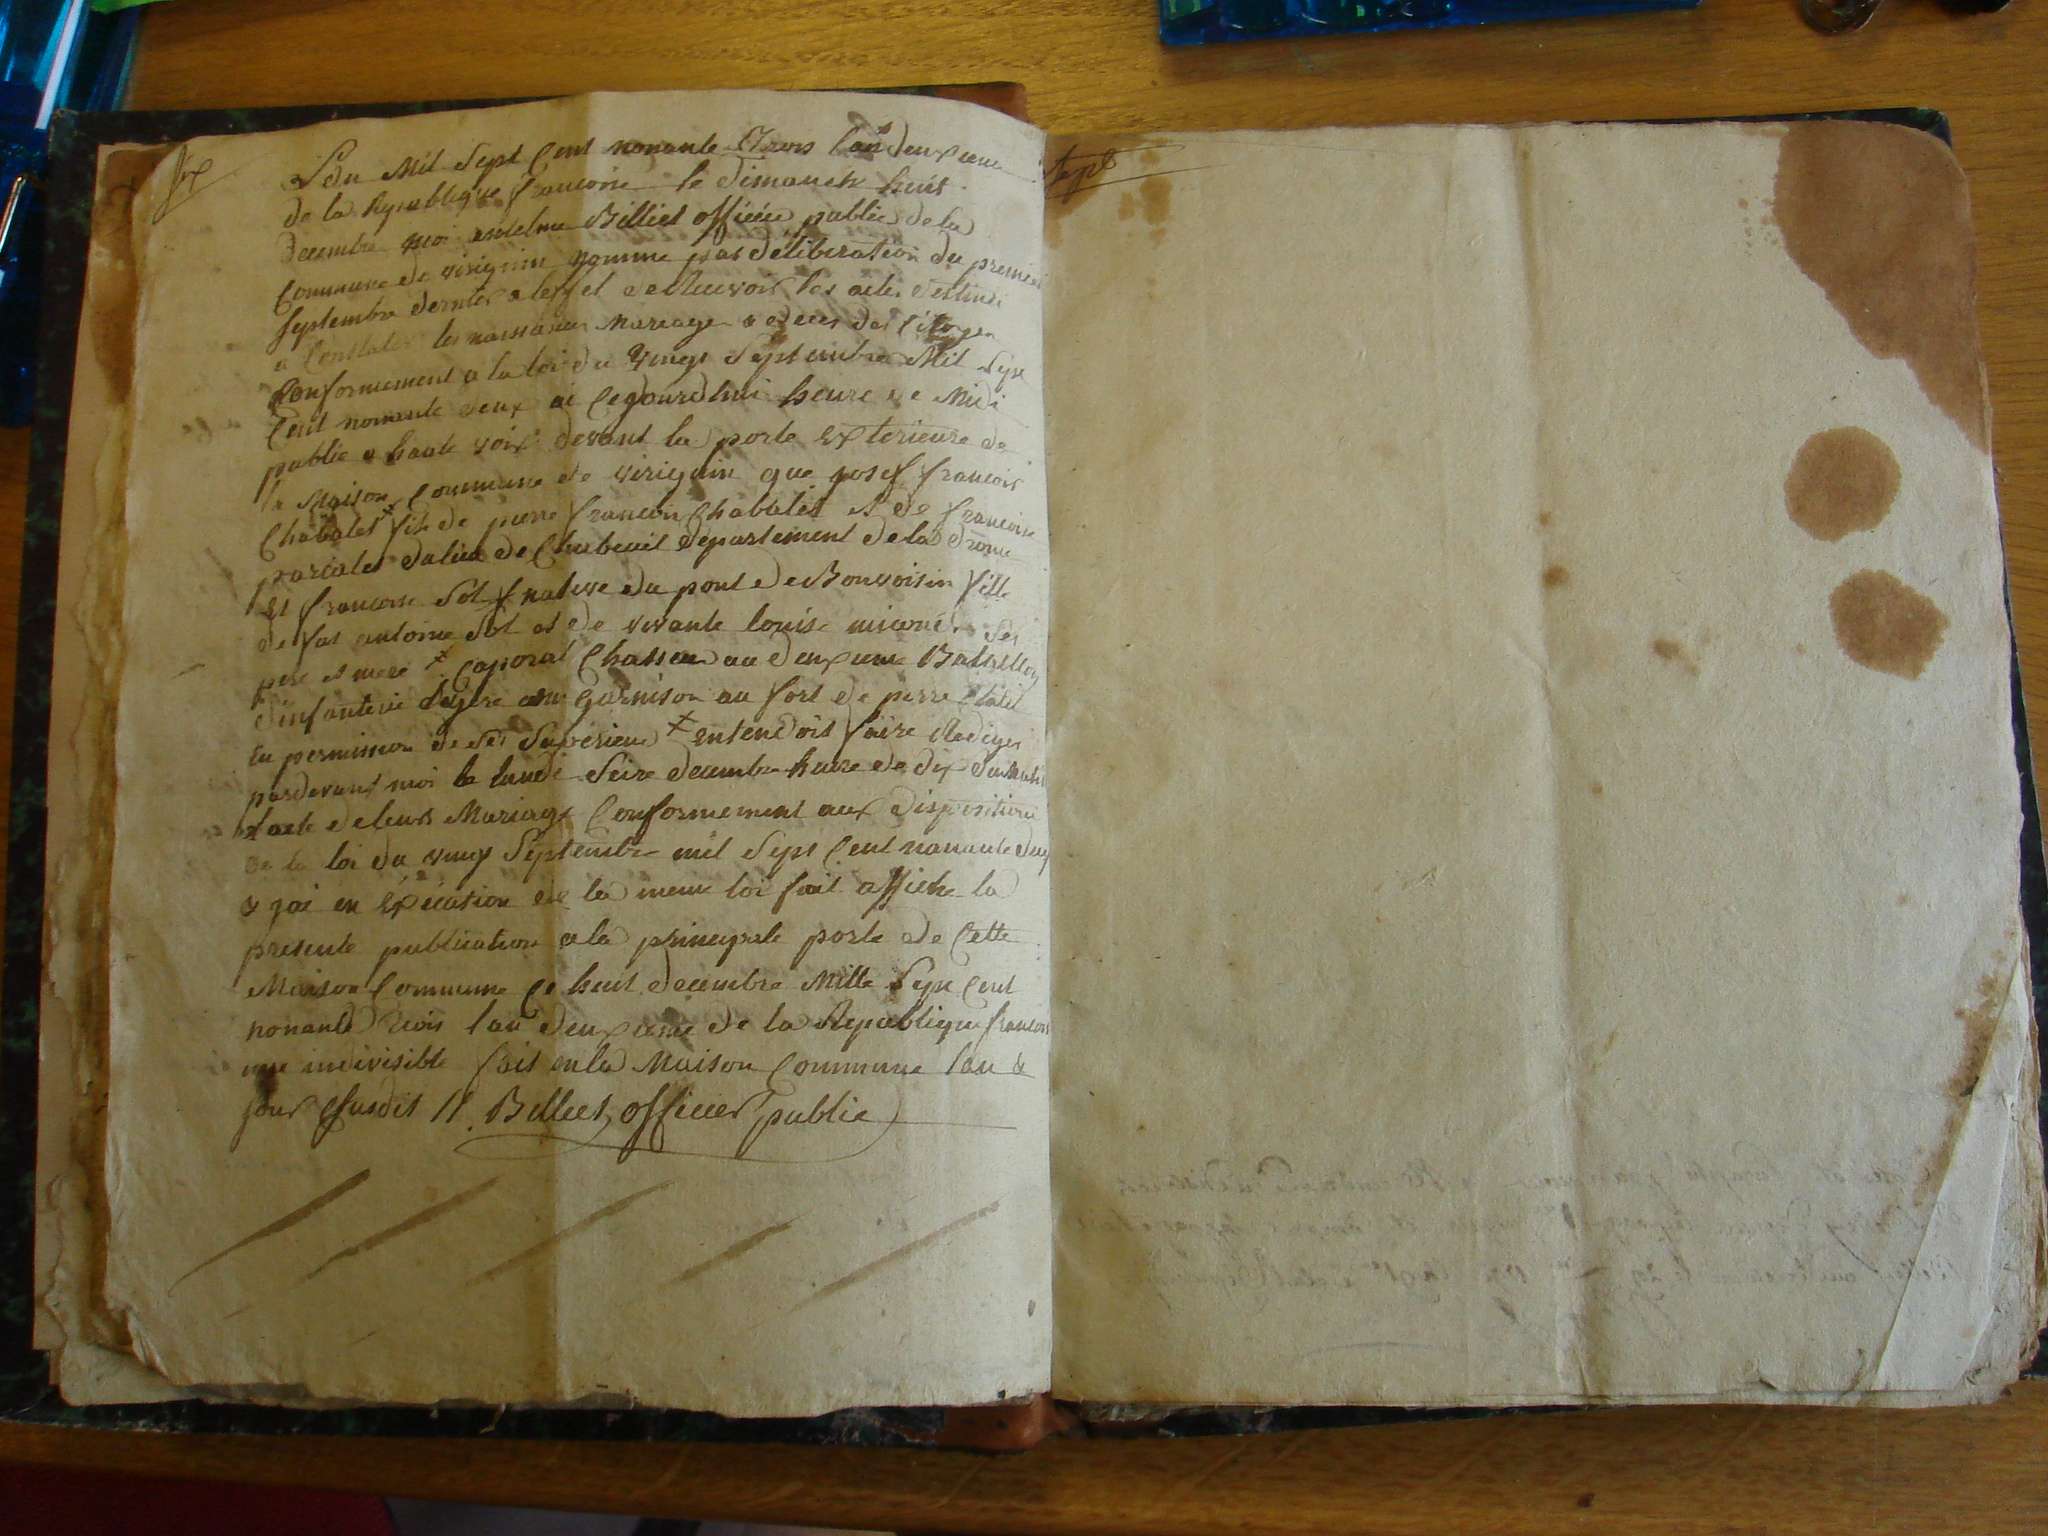 six
L'an Mil Sept Cent nonante Trois L'an deuxieme
de la Republique francoise le dimanche huit
decembre moi antelme Billiet officier public de la
Commune de virignin nomme par deliberation du premier
septembre dernier a leffet de Recevoir les actes destines
a Constater les naissances Mariages & deces des Citoyen
Conformement a la loi du vingt Septembre Mil Sept
Cent nonante deux ai Cejourdhui heure de Midi
publie a haute voix devant la porte Exterieure de
la Maison Commune de virignin que josef francois
Chabalet + fils de pierre francois Chabalet et de francoise
du lieu de Chabeuil departement de la drome
Et francoise Sol native du pont de Bonvoisin fille
de feu antoine Sol et de vivante louise Ses
pere et mere + Caporal Chasseur au deuxieme Bataillon
dinfanterie legere en garnison au fort de pierre Chatel
en permission de Ses Superieur + entendoit faire Rediger
pardevant moi le lundi Seize decembre heure de dix du Matin
lacte de leurs Mariage Conformement aux dispositions
de la loi du vingt Septembre mil Sept Cent nonante deux
& jai en Execution de la meme loi fait affiche la
presente publication a la principale porte de Cette
Maison Commune Ce huit decembre Mille Sept Cent
nonante Trois lan deuxieme de la Republique francois
une indivisible fait en la Maison Commune lan &
jour Susdit Billiet officier public
sept